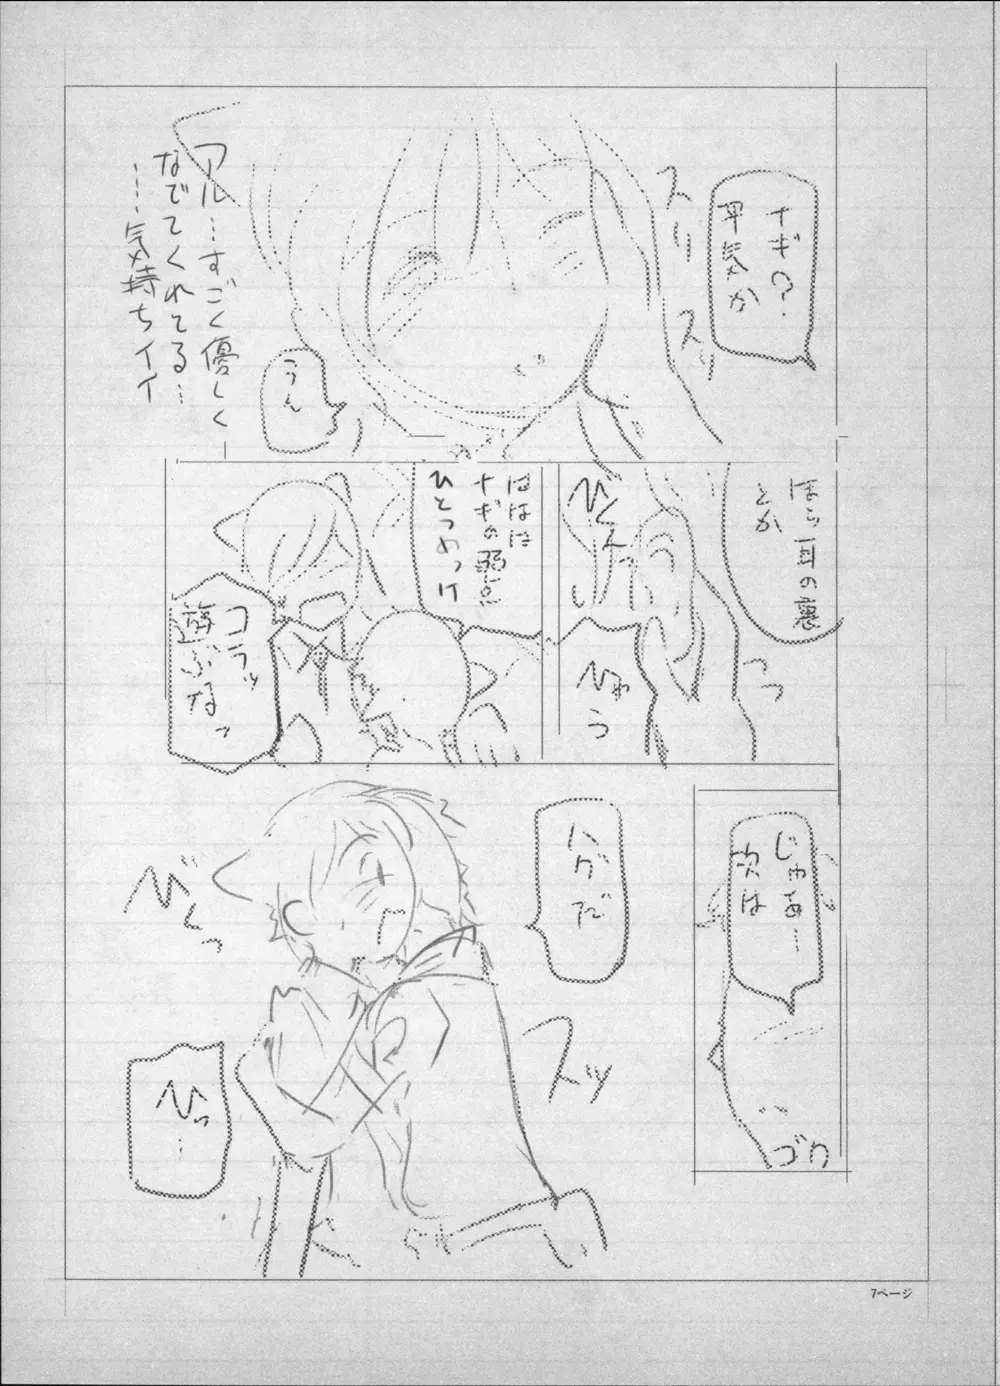 ナギ?
平気か
スリ
スリ
うん
アル…すごく優しく
なでてくれてる…
…気持ちイイ
ほら耳の裏
とか
びくんっ
ひゃう
ははは
ナギの弱点
ひとつめっけ
コラッ
遊ぶなっ
じゃあ…
次は
ゴク
ハグだ
スッ
びくっ
ひっ…
7ページ